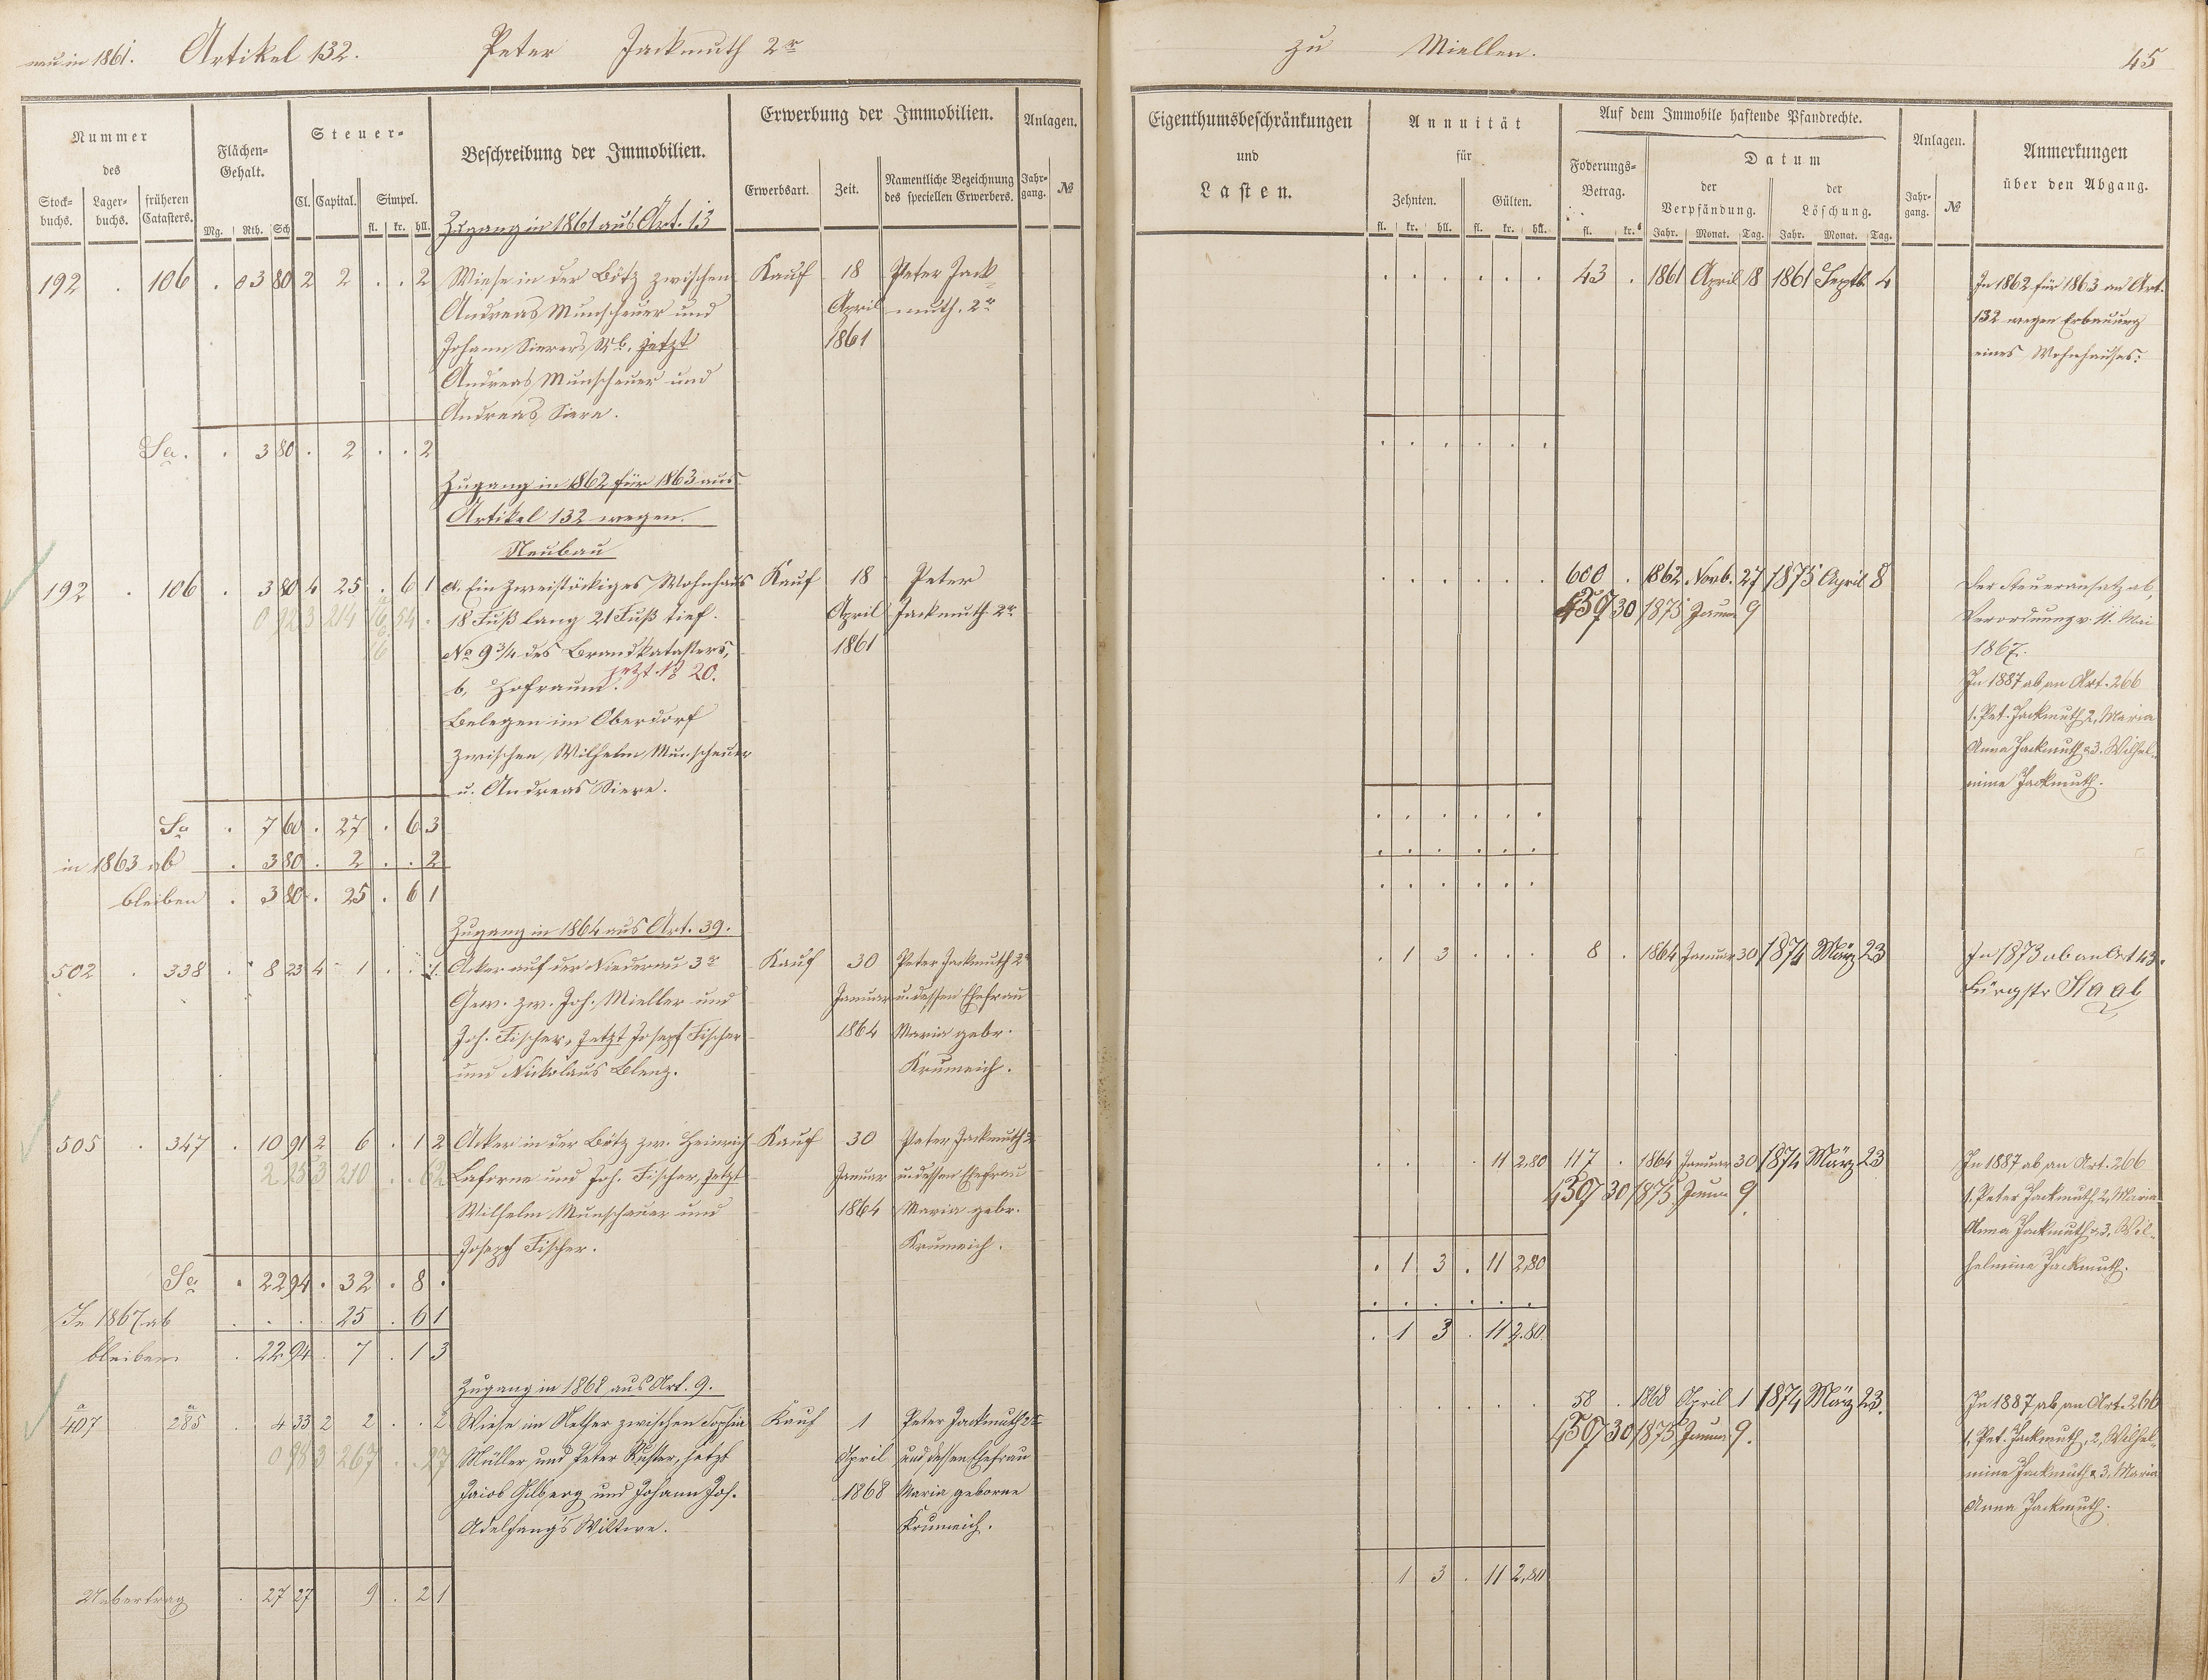 neu in 1861. Artikel 132. Peter Jackmuth 2r
zu Miellen. 45
Nummer
des
Stock-
buchs.
Lager-
buchs.
früheren
Catasters.
Flächen-
Gehalt.
Mg. Rth. Sch
Steuer-
Cl. Capital. Simpel.
fl. kr. hll.
Beschreibung der Immobilien.
Erwerbung der Immobilien.
Erwerbsart. Zeit.
Namentliche Bezeichnung
des speciellen Erwerbers.
Anlagen.
Jahr-
gang. №
Eigenthumsbeschränkungen
und
Lasten.
Annuität
für
Zehnten. Gülten.
fl. kr. hll. fl. kr. hll.
Auf dem Immobile haftende Pfandrechte.
Foderungs-
Betrag.
fl. kr.
Datum
der
Verpfändung.
der
Löschung.
Jahr. Monat. Tag. Jahr. Monat. Tag.
Anlagen.
Jahr-
gang. №
Anmerkungen
über den Abgang.
Zugang in 1861 aus Art. 13
192 . 106 . 03 80 2 2 . . 2 Wiese in der Bötz zwischen Kauf 18 Peter Jack-
Andreas Munscheuer und April muth. 2r
Johann Sierers Wb. jetzt 1861
Andreas Munscheuer und
Andreas Siere.
. . . . . . 43 . 1861 April 18 1861 Septb. 4
In 1862 für 1863 an Art.
132 wegen Erbauung
eines Wohnhauses.
Sa. . 3 80 . 2 . . 2
. . . . . .
Zugang in 1862 für 1863 aus
Artikel 132 wegen
Neubau
192 . 106 . 3 80 4 25 . 6 1 a. Ein zweistöckiges Wohnhaus Kauf 18 Peter
0 92 3 214 54 . 18 Fuß lang 21 Fuß tief. April Jackmuth 2r
No 9 3/4 des Brandkatasters, 1861
jetzt № 20.
b, Hofraum.
Belegen im Oberdorf
zwischen Wilhelm Munscheuer
u. Andreas Siere.
. . . . . . 600 . 1862 Novb. 27 1875 April 8
459 30 1875 Januar 9
Der Steueransatz ab,
Verordnung v. 11. Mai
1867.
In 1887 ab, an Art. 266
1. Pet. Jackmuth 2, Maria
Anna Jackmuth & 3, Wilhel-
mine Jackmuth.
Sa . 7 60 . 27 . 6 3
. . . . . .
in 1863 ab . 3 80 . 2 . . 2
. . . . . .
bleiben . 3 80 . 25 . 6 1
. . . . . .
Zugang in 1864 aus Art. 39.
502 . 338 . 8 23 4 1 . . 1. Acker auf der Niederau 3r Kauf 30 Peter Jackmuth 2r
Gew. zw. Joh. Mieller und Januar u. dessen Ehefrau
Joh. Fischer, Jetzt Josepf Fischer 1864 Maria gebr.
und Nickolaus Blenz. Krumeich.
. 1 3 . . . 8 . 1864 Januar 30 1874 März 23
In 1873 ab an Art 43.
Staab
505 . 347 . 10 91 2 6 . 1 2 Acker in der Bötz zw. Heinrich Kauf 30 Peter Jackmuth 2r
2 25 3 210 . . 62 Laforne und Joh. Fischer, Jetzt Januar u. dessen Ehefrau
Wilhelm Munschauer und 1864 Maria gebr.
Josepf Fischer. Krumeich.
. . . 11 2,80 117 . 1864 Januar 30 1874 März 23
459 30 1875 Januar 9.
In 1887 ab an Art. 266
1. Peter Jackmuth, 2, Maria
Anna Jackmuth & 3, Wil-
helmine Jackmuth.
Sa . 22 94 . 32 . 8 .
. 1 3 . 11 2,80
In 1867 ab . . . 25 . 6 1
. . . . . .
bleiben . 22 94 . 7 . 1 3
. 1 3 . 11 2.80
Zugang in 1868 aus Art. 9.
a407 a285 . 4 33 2 2 . . 2 Wiese im zwischen Sophia Kauf 1 Peter Jackmuth 2r
0 98 3 267 . . 27 Müller und Peter Kuster, jetzt April und dessen Ehefrau
Jacob Gilberg und Johann Jos. 1868 Maria geborne
Adelfang's Wittwe. Krumeich.
. . . . . . 58 . 1868 April 1 1874 März 23.
459 30 1875 Januar 9.
In 1887 ab, an Art. 266
1, Pet. Jackmuth, 2, Wilhel-
mine Jackmuth & 3, Maria
Anna Jackmuth.
Uebertrag . 27 27 9 . 2 1
1 3 . 11 2,80